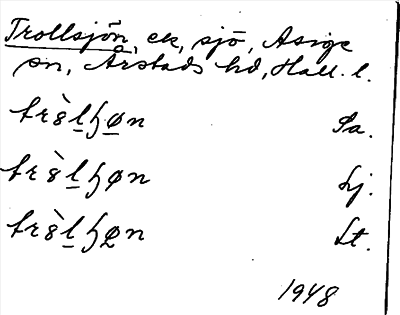 Trollsjön, ek, sjö, Asige
sn, Årstads hd, Hall. l.
trò̀l̲ɧø̲n Sa.
trò̀l̲ɧøn Lj.
trò̀l̲ɧøn Lt.
1948